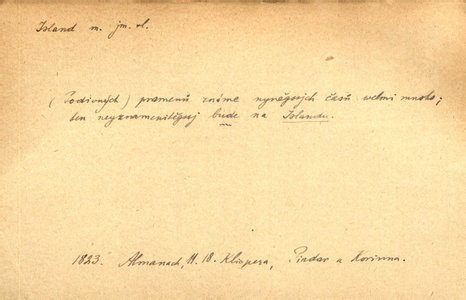 Island m. jm. vl.
(Podivných) pramenů známe nyněgssjch časů welmi mnoho;
ten neyznamenitěgssj bude na Islandu.
1823. Almanach, H. W. Klicpera, Pindar a Korinna.